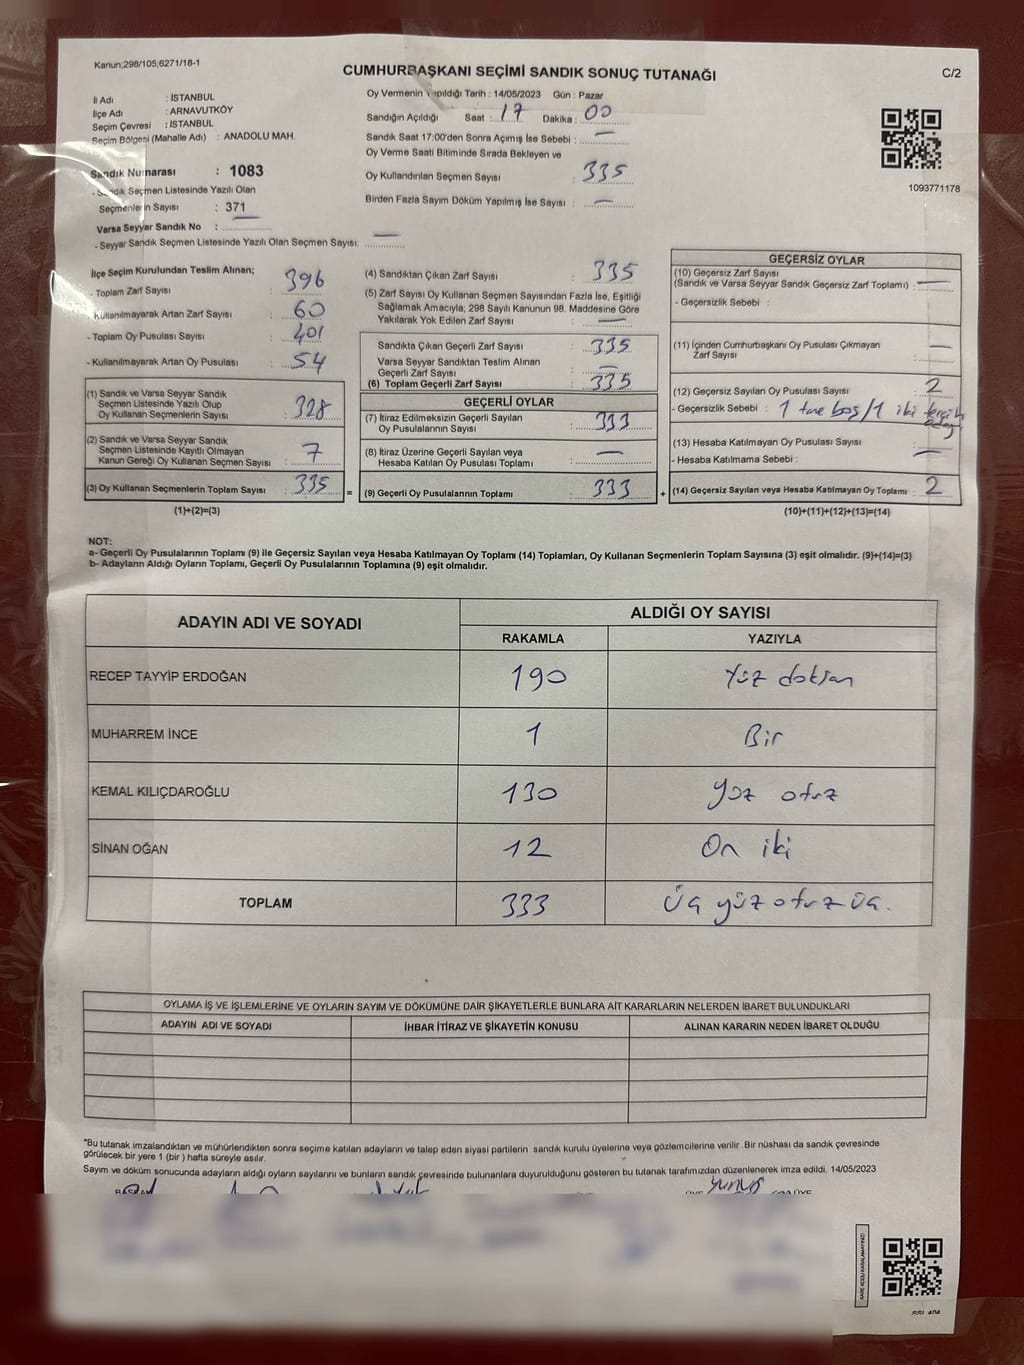 Kanun,298/105,6271/18-1
C/2
CUMHURBAŞKANI SEÇİMİ SANDIK SONUÇ TUTANAĞI
İl Adı : İSTANBUL
İlçe Adı : ARNAVUTKÖY
Seçim Çevresi : İSTANBUL
Seçim Bölgesi (Mahalle Adı) : ANADOLU MAH.
Sandık Numarası : 1083
- Sandık Seçmen Listesinde Yazılı Olan
Seçmenlerin Sayısı : 371
Varsa Seyyar Sandık No :
- Seyyar Sandık Seçmen Listesinde Yazılı Olan Seçmen Sayısı:
Oy Vermenin Yapıldığı Tarih : 14/05/2023 Gün : Pazar
Sandığın Açıldığı Saat : 17 Dakika : 00
Sandık Saat 17:00'den Sonra Açımış İse Sebebi :
Oy Verme Saati Bitiminde Sırada Bekleyen ve
Oy Kullandırılan Seçmen Sayısı : 335
Birden Fazla Sayım Döküm Yapılmış İse Sayısı :
1093771178
İlçe Seçim Kurulundan Teslim Alınan;
- Toplam Zarf Sayısı : 396
- Kullanılmayarak Artan Zarf Sayısı : 60
- Toplam Oy Pusulası Sayısı : 401
- Kullanılmayarak Artan Oy Pusulası : 54
(1) Sandık ve Varsa Seyyar Sandık
Seçmen Listesinde Yazılı Olup
Oy Kullanan Seçmenlerin Sayısı : 328
(2) Sandık ve Varsa Seyyar Sandık
Seçmen Listesinde Kayıtlı Olmayan
Kanun Gereği Oy Kullanan Seçmen Sayısı : 7
(3) Oy Kullanan Seçmenlerin Toplam Sayısı : 335
(1)+(2)=(3)
(4) Sandıktan Çıkan Zarf Sayısı : 335
(5) Zarf Sayısı Oy Kullanan Seçmen Sayısından Fazla İse, Eşitliği
Sağlamak Amacıyla, 298 Sayılı Kanunun 98. Maddesine Göre
Yakılarak Yok Edilen Zarf Sayısı :
Sandıkta Çıkan Geçerli Zarf Sayısı : 335
Varsa Seyyar Sandıktan Teslim Alınan
Geçerli Zarf Sayısı :
(6) Toplam Geçerli Zarf Sayısı : 335
GEÇERLİ OYLAR
(7) İtiraz Edilmeksizin Geçerli Sayılan
Oy Pusulalarının Sayısı : 333
(8) İtiraz Üzerine Geçerli Sayılan veya
Hesaba Katılan Oy Pusulası Toplamı :
= (9) Geçerli Oy Pusulalarının Toplamı : 333 +
GEÇERSİZ OYLAR
(10) Geçersiz Zarf Sayısı
(Sandık ve Varsa Seyyar Sandık Geçersiz Zarf Toplamı) :
- Geçersizlik Sebebi :
(11) İçinden Cumhurbaşkanı Oy Pusulası Çıkmayan
Zarf Sayısı :
(12) Geçersiz Sayılan Oy Pusulası Sayısı : 2
- Geçersizlik Sebebi : 1 tane boş/1 iki tercih
(13) Hesaba Katılmayan Oy Pusulası Sayısı :
- Hesaba Katılmama Sebebi :
(14) Geçersiz Sayılan veya Hesaba Katılmayan Oy Toplamı : 2
(10)+(11)+(12)+(13)=(14)
NOT:
a- Geçerli Oy Pusulalarının Toplamı (9) ile Geçersiz Sayılan veya Hesaba Katılmayan Oy Toplamı (14) Toplamları, Oy Kullanan Seçmenlerin Toplam Sayısına (3) eşit olmalıdır. (9)+(14)=(3)
b- Adayların Aldığı Oyların Toplamı, Geçerli Oy Pusulalarının Toplamına (9) eşit olmalıdır.
ADAYIN ADI VE SOYADI
ALDIĞI OY SAYISI
RAKAMLA YAZIYLA
RECEP TAYYİP ERDOĞAN 190 Yüz doksan
MUHARREM İNCE 1 Bir
KEMAL KILIÇDAROĞLU 130 Yüz otuz
SİNAN OĞAN 12 On iki
TOPLAM 333 Üç yüz otuz üç.
OYLAMA İŞ VE İŞLEMLERİNE VE OYLARIN SAYIM VE DÖKÜMÜNE DAİR ŞİKAYETLERLE BUNLARA AİT KARARLARIN NELERDEN İBARET BULUNDUKLARI
ADAYIN ADI VE SOYADI İHBAR İTİRAZ VE ŞİKAYETİN KONUSU ALINAN KARARIN NEDEN İBARET OLDUĞU
*Bu tutanak imzalandıktan ve mühürlendikten sonra seçime katılan adayların ve talep eden siyasi partilerin sandık kurulu üyelerine veya gözlemcilerine verilir. Bir nüshası da sandık çevresinde
görülecek bir yere 1 (bir ) hafta süreyle asılır.
Sayım ve döküm sonucunda adayların aldığı oyların sayılarını ve bunların sandık çevresinde bulunanlara duyurulduğunu gösteren bu tutanak tarafımızdan düzenlenerek imza edildi. 14/05/2023
Yunus